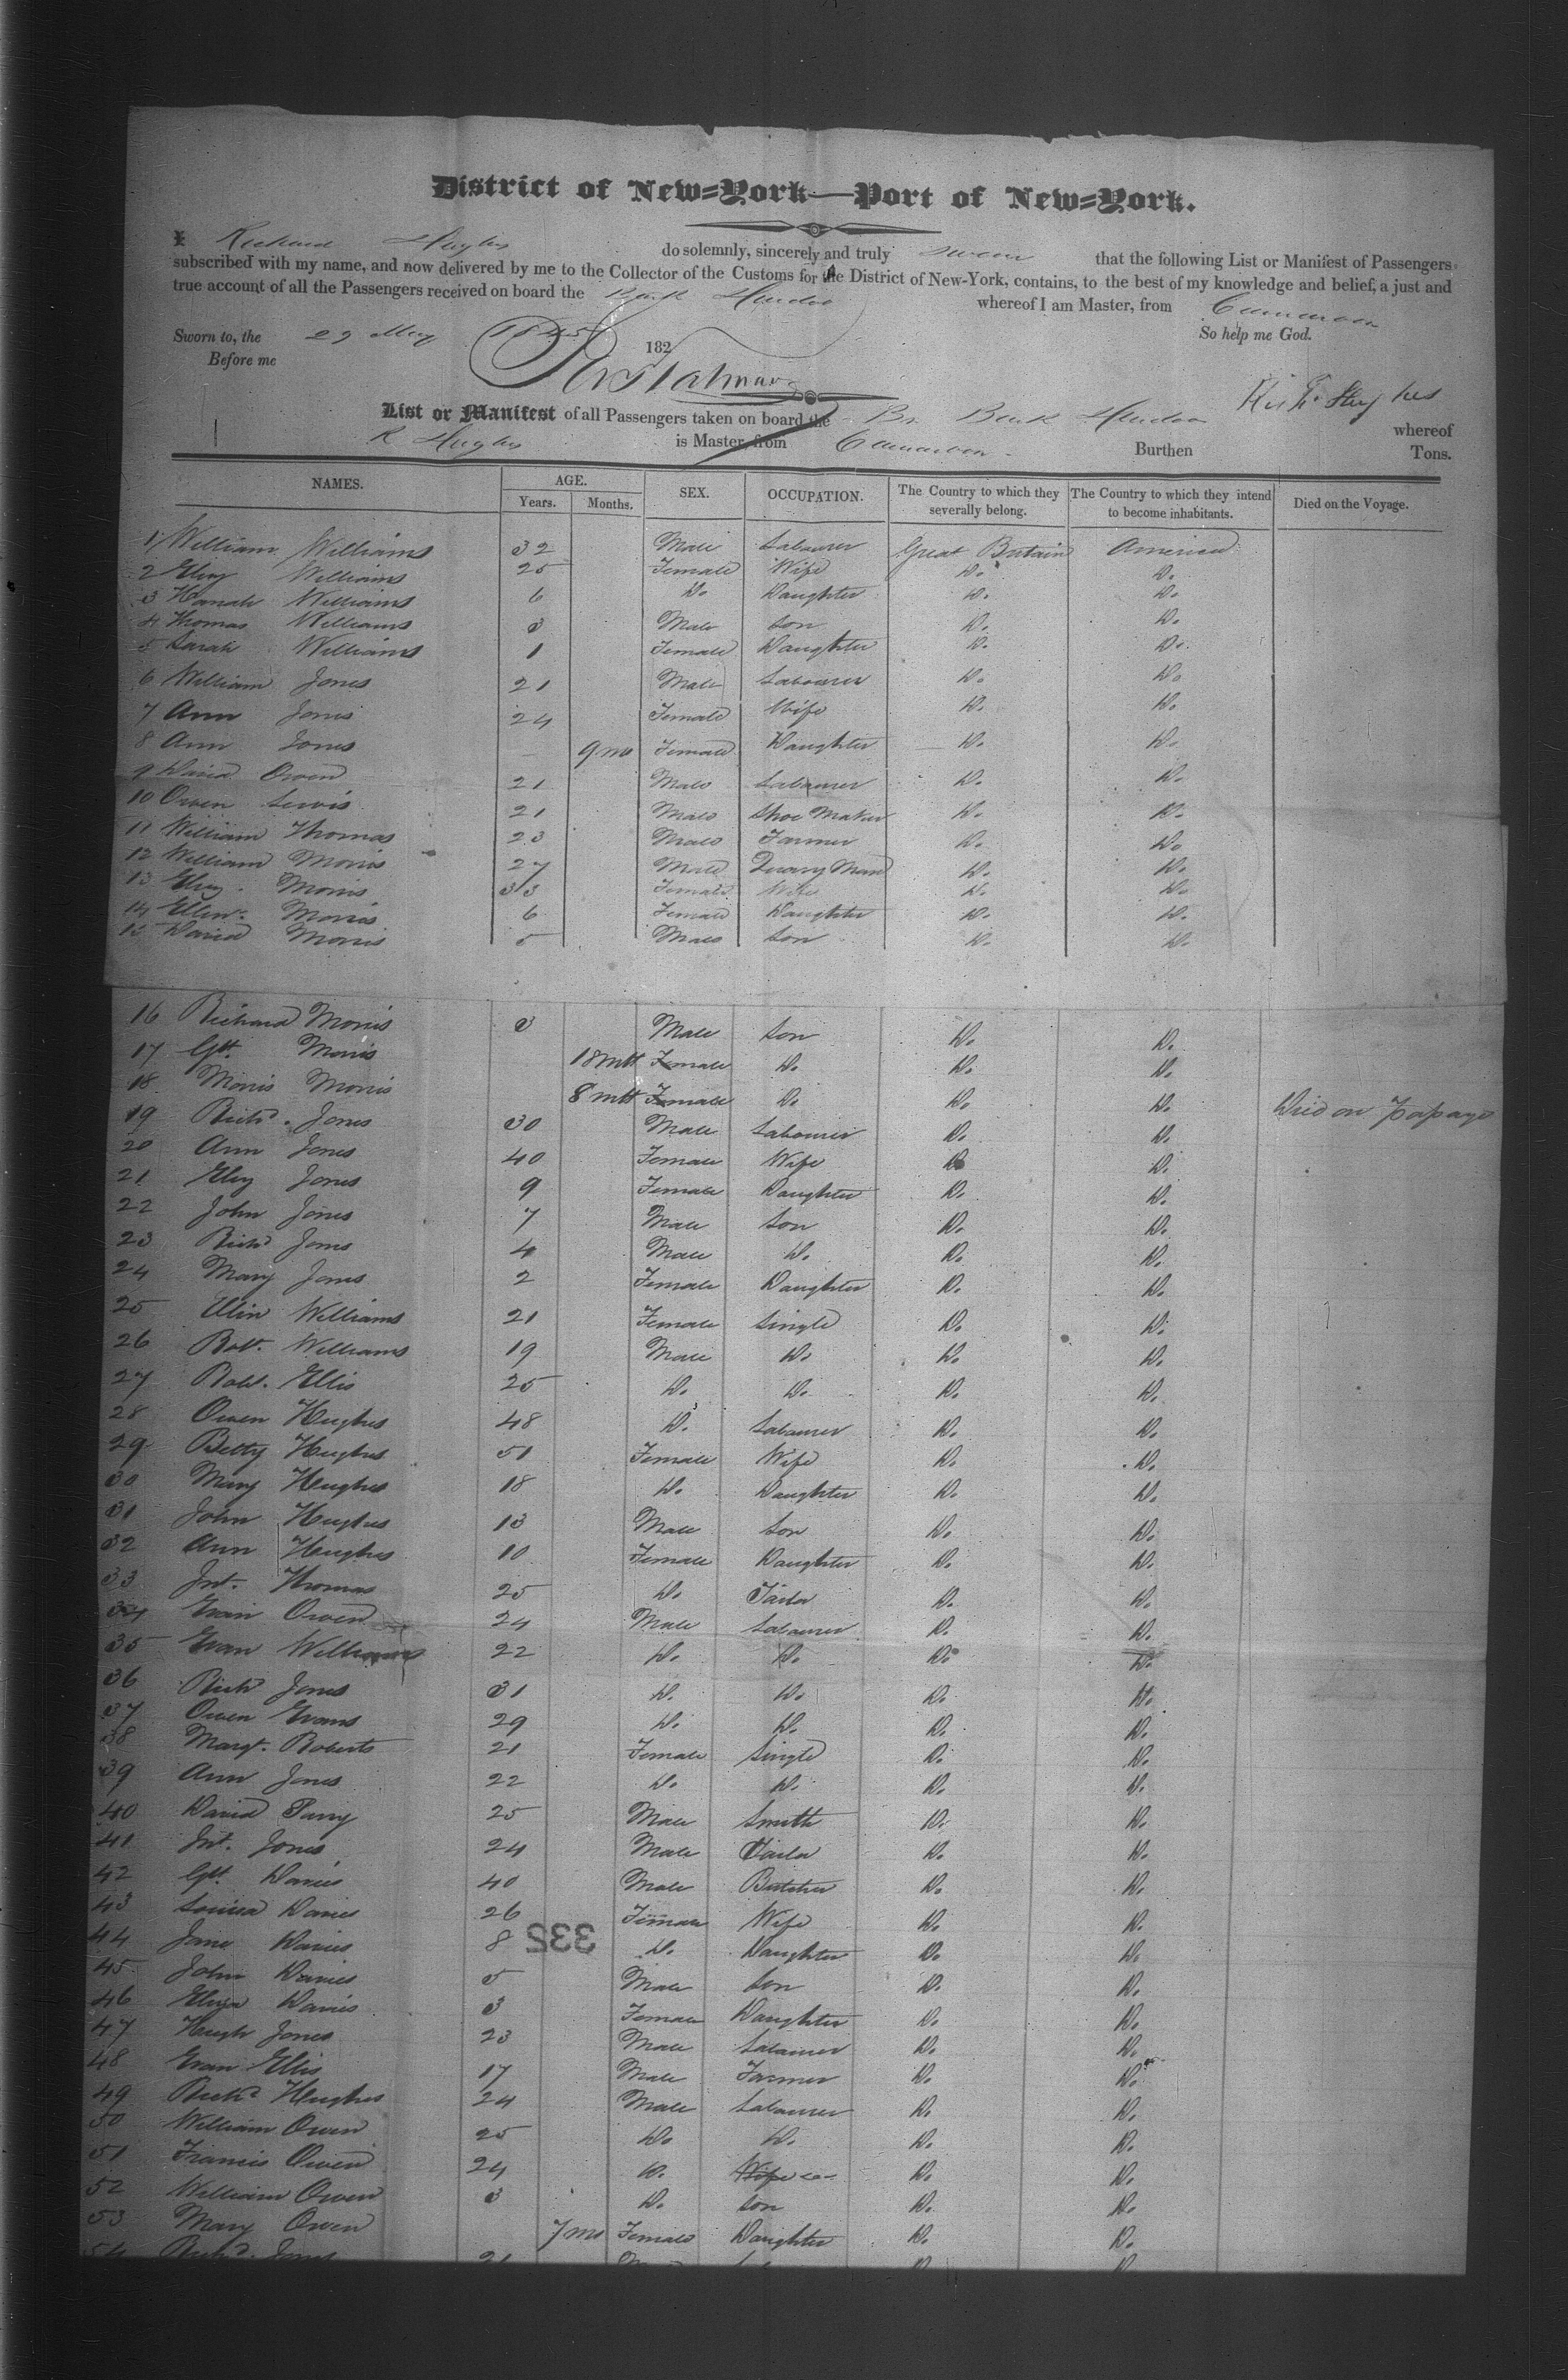 District of New=York—Port of New=York.
I Richard Hughes do solemnly, sincerely and truly swear that the following List or Manifest of Passengers
subscribed with my name, and now delivered by me to the Collector of the Customs for the District of New-York, contains, to the best of my knowledge and belief, a just and
true account of all the Passengers received on board the Bark whereof I am Master, from Carnarvon
Sworn to, the 29 May 1845 182 So help me God.
Before me
Richd. Hughes
List or Manifest of all Passengers taken on board the Br Bark whereof
R Hughes is Master, from Carnarvon Burthen Tons.
NAMES. AGE. SEX. OCCUPATION. The Country to which they severally belong. The Country to which they intend to become inhabitants. Died on the Voyage.
Years. Months.
1 William Williams 32 Male Labourer Great Britain America
2 Elizy Williams 25 Female Wife Do. Do.
3 Hannah Williams 6 Do Daughter Do. Do
4 Thomas Williams 3 Male Son Do. Do.
5 Sarah Williams 1 Female Daughter Do. Do.
6 William Jones 21 Male Labourer Do Do
7 Ann Jones 24 Female Wife Do. Do.
8 Ann Jones 9 ms Female Daughter Do. Do.
9 David Owen 21 Male Labourer Do. Do.
10 Owen Lewis 21 Male Shoe Maker Do. Do.
11 William Thomas 23 Male Farmer Do. Do
12 William Morris 27 Male Quary Man Do. Do.
13 Elizy. Morris 33 Female Wife Do. Do
14 Ellin. Morris 6 Female Daughter Do. Do.
15 David Morris 5 Male Son Do. Do.
16 Richard Morris 3 Male Son Do. Do.
17 Gtt. Morris 18 mtt Female Do. Do. Do.
18 Morris Morris 8 mtt Female Do. Do. Do. Died on
19 Richd. Jones 30 Male Labourer Do. Do.
20 Ann Jones 40 Female Wife Do Do.
21 Elizy Jones 9 Female Daughter Do. Do.
22 John Jones 7 Male Son Do. Do.
23 Richd Jones 4 Male Do. Do. Do.
24 Mary Jones 2 Female Daughter Do. Do.
25 Ellin Williams 21 Female Single Do. Do.
26 Robt. Williams 19 Male Do. Do. Do.
27 Robt. Ellis 25 Do. Do. Do. Do.
28 Owen Hughes 48 Do. Labourer Do. Do.
29 Betty Hughes 51 Female Wife Do. Do.
30 Mary Hughes 18 Do. Daughter Do. Do.
31 John Hughes 13 Male Son Do. Do.
32 Ann Hughes 10 Female Daughter Do. Do.
33 Jnt. Thomas 25 Do. Tailor Do. Do.
34 Evan Owen 24 Male Labourer Do. Do.
35 Evan Williams 22 Do. Do. Do. Do.
36 Richd Jones 31 Do. Do. Do. Do.
37 Owen Evans 29 Do. Do. Do. Do.
38 Margt. Roberts 21 Female Single Do. Do.
39 Ann Jones 22 Do. Do. Do. Do.
40 David Parry 25 Male Smith Do. Do.
41 Jnt. Jones 24 Male Tailor Do. Do.
42 Gtt. Davies 40 Male Butcher Do. Do.
43 Louisa Davies 26 Female Wife Do. Do.
332
44 Jane Davies 8 Do. Daughter Do. Do.
45 John Davies 5 Male Son Do. Do.
46 Eliza Davies 3 Female Daughter Do. Do.
47 Hugh Jones 23 Male Labourer Do. Do.
48 Evan Ellis 17 Male Farmer Do. Do.
49 Richd Hughes 24 Male Labourer Do. Do.
50 William Owen 25 Do Do. Do. Do.
51 Francis Owen 24 Do. Wife Do. Do.
52 William Owen 3 Do. Son Do. Do.
53 Mary Owen 7 ms Female Daughter Do. Do.
54 Richd. Jones 21